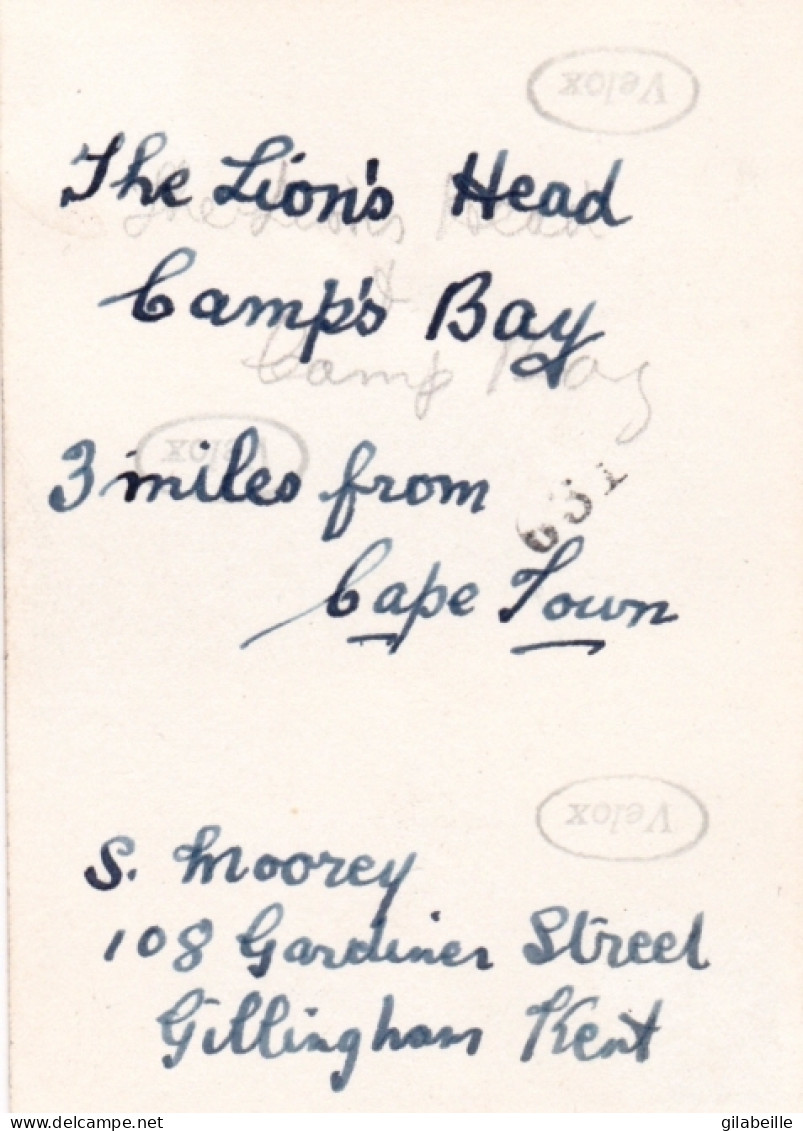 Velox
The Lion's Head
The Lion's Head
&
Camp's Bay
Camp Bay
Velox
3 miles from
631
Cape Town
Velox
S. Moorey
108 Gardiner Street
Gillingham Kent
delcampe.net
gilabeille